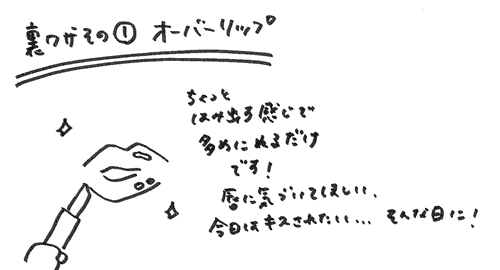 裏ワザその① オーバーリップ
ちょっと
はみ出す感じで
多めにぬるだけ
です！
唇に気づいてほしい、
今日はキスされたい… そんな日に！